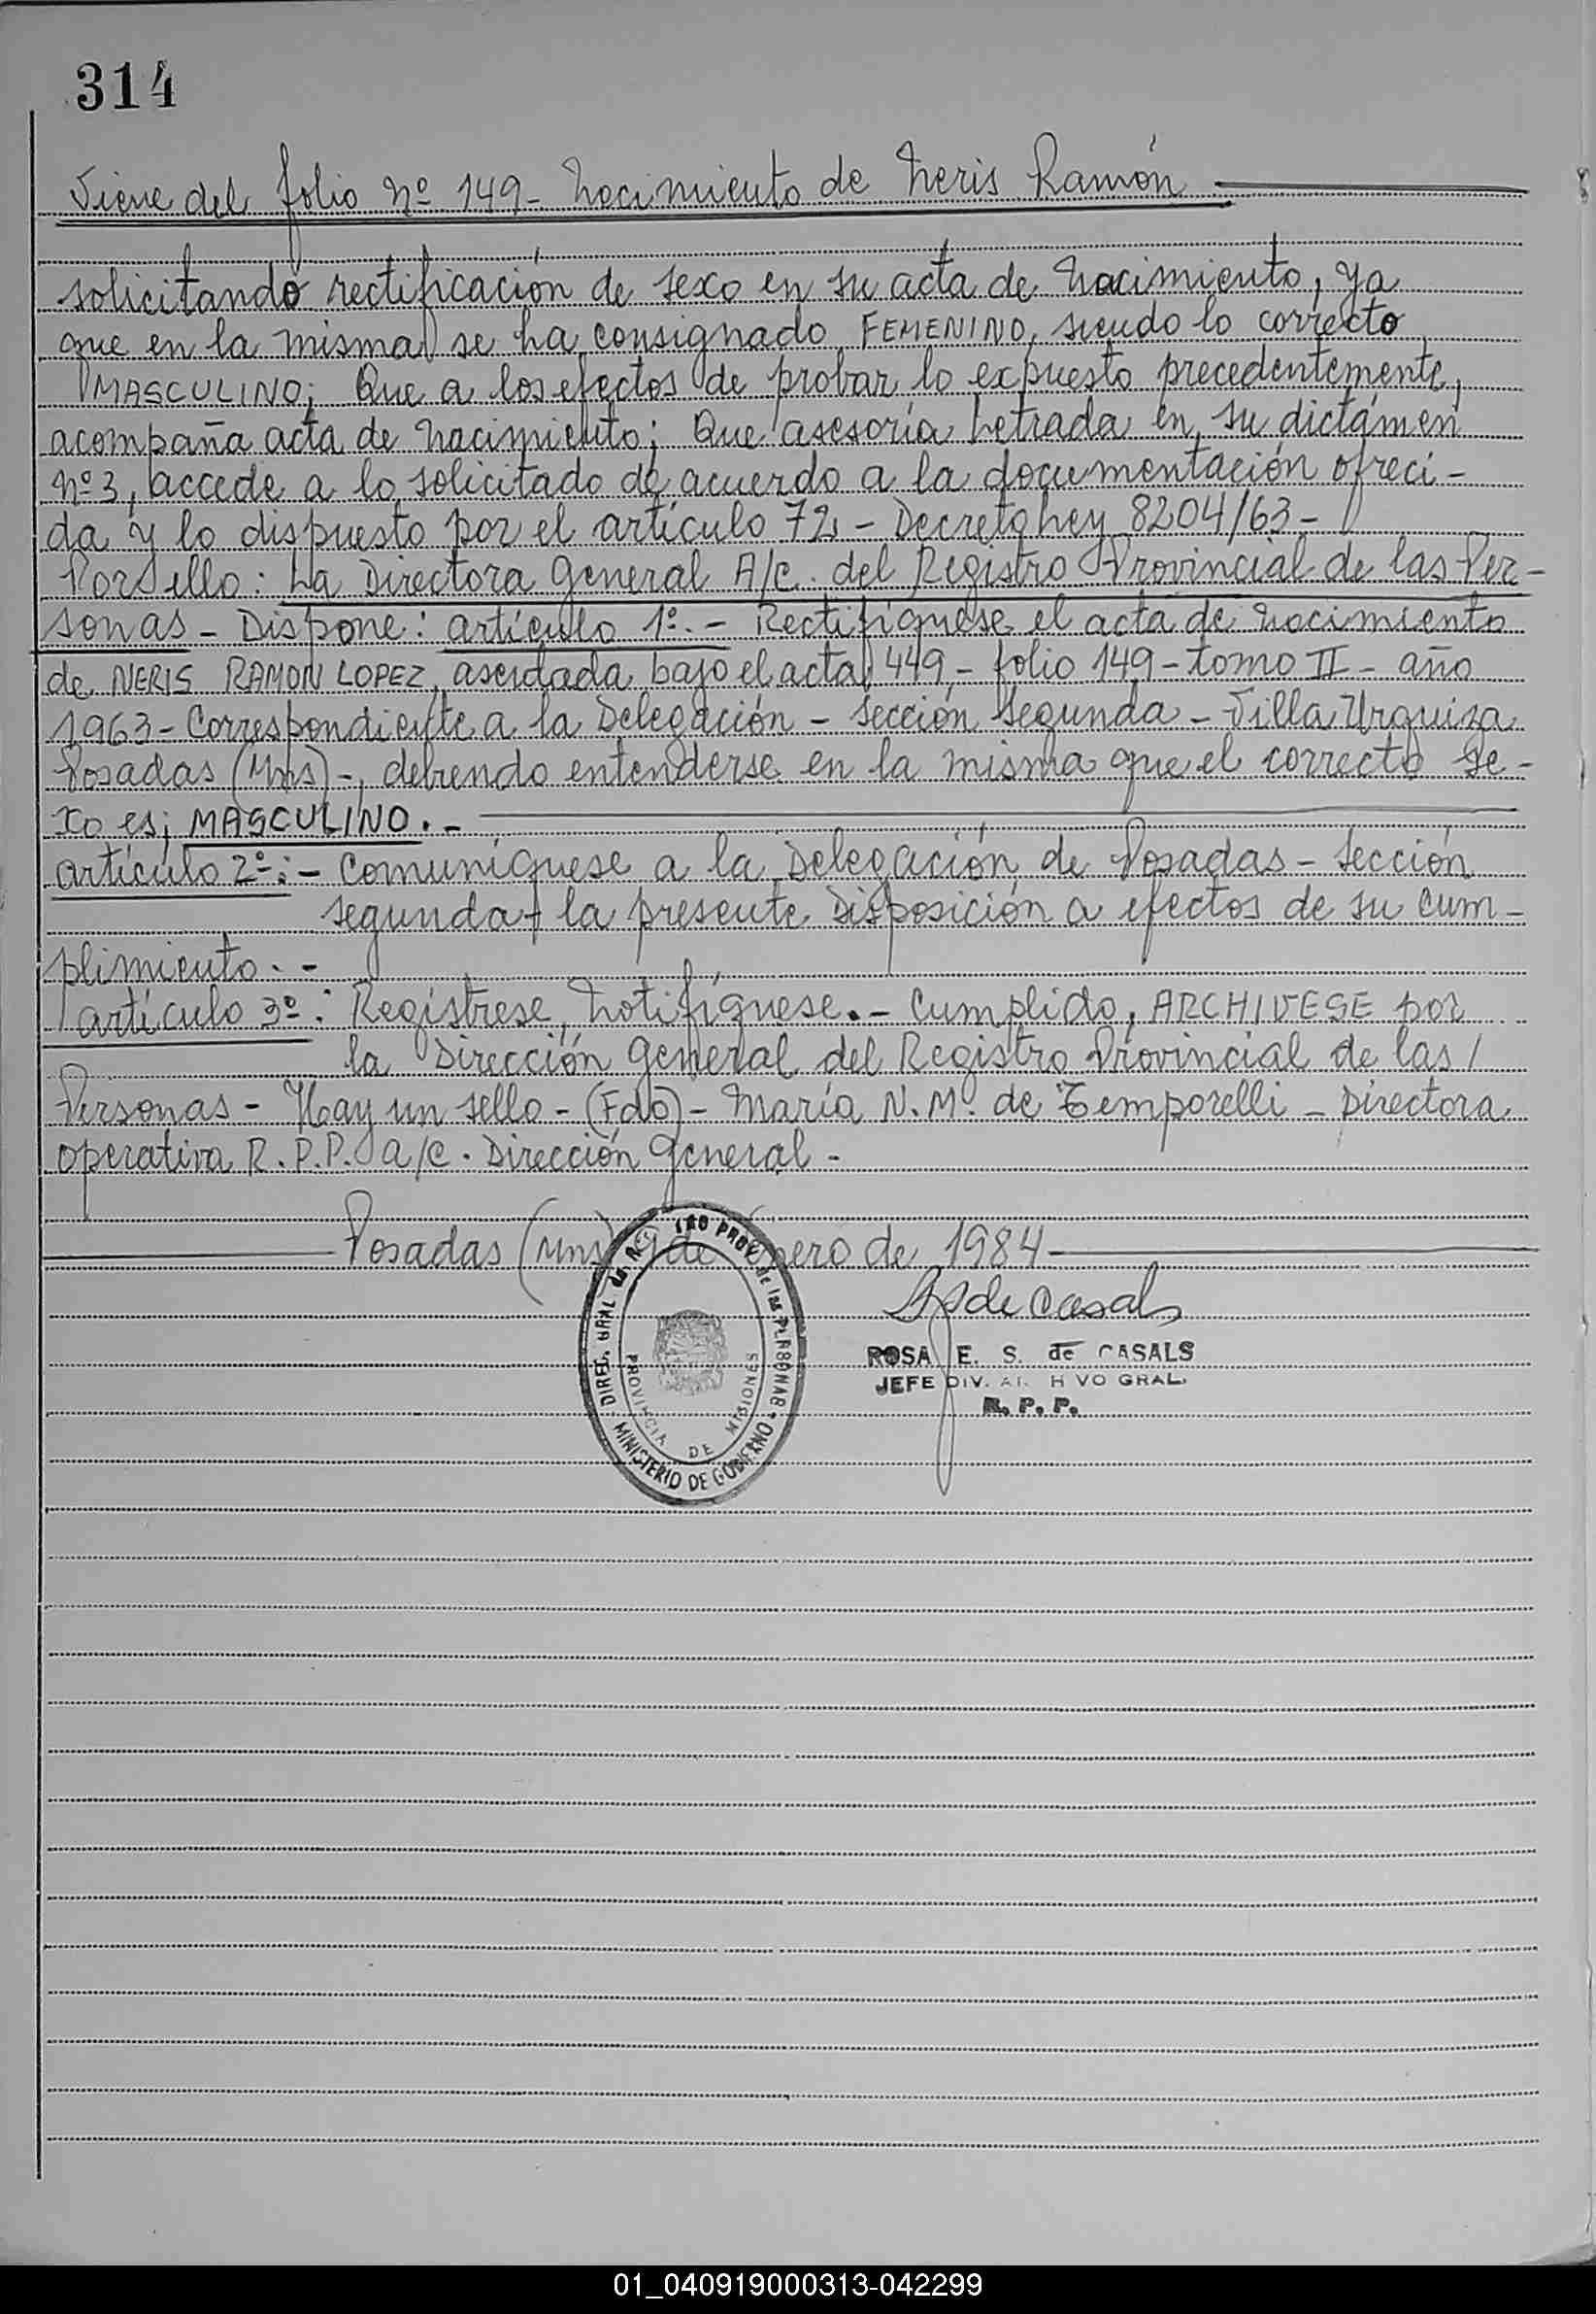 314
Viene del folio Nº 149 - Nacimiento de Neris Ramón
solicitando rectificación de sexo en su acta de Nacimiento, ya
que en la misma se ha consignado FEMENINO, siendo lo correcto
MASCULINO; Que a los efectos de probar lo expuesto precedentemente,
acompaña acta de Nacimiento; Que asesoría Letrada en su dictámen
Nº 3, accede a lo solicitado de acuerdo a la documentación ofreci-
da y lo dispuesto por el artículo 72 - Decreto Ley 8204/63 -
Por ello: La Directora General A/c. del Registro Provincial de las Per-
sonas - Dispone: artículo 1º. - Rectifíquese el acta de Nacimiento
de NERIS RAMON LOPEZ, asentada bajo el acta 449 - folio 149 - tomo II - año
1963 - Correspondiente a la Delegación - Sección Segunda - Villa Urquiza
Posadas (Mns) -, debiendo entenderse en la misma que el correcto se-
xo es; MASCULINO. -
artículo 2º: - Comuníquese a la Delegación de Posadas - Sección
segunda - la presente Disposición a efectos de su cum-
plimiento. -
artículo 3º: Regístrese, Notifíquese. - Cumplido, ARCHIVESE por
la Dirección General del Registro Provincial de las /
Personas - Hay un sello - (Fdo) - María N. M. de Temporelli - Directora
operativa R.P.P. a/c. Dirección General -
Posadas (Mns) de Enero de 1984
DIREC. GRAL. del REG PROV. de las PERSONAS
PROVINCIA DE MISIONES
MINISTERIO DE GOBIERNO
de Casals
ROSA E. S. de CASALS
JEFE DIV. ARCHIVO GRAL.
R. P. P.
01_040919000313-042299